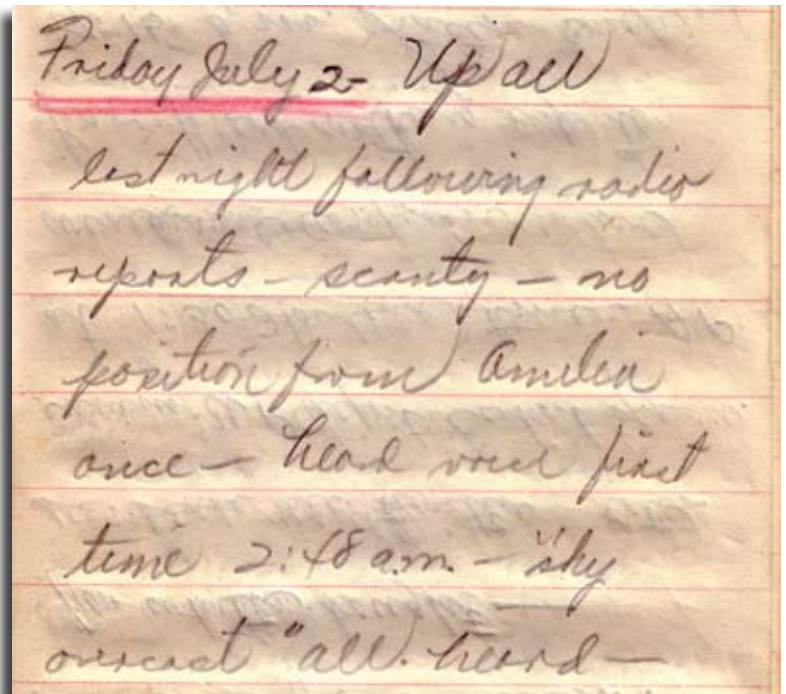 Friday July 2- Up all
last night following radio
reports - scanty - no
position from Amelia
once - heard voice first
time 2:48 a.m. - "sky
overcast" all. heard -